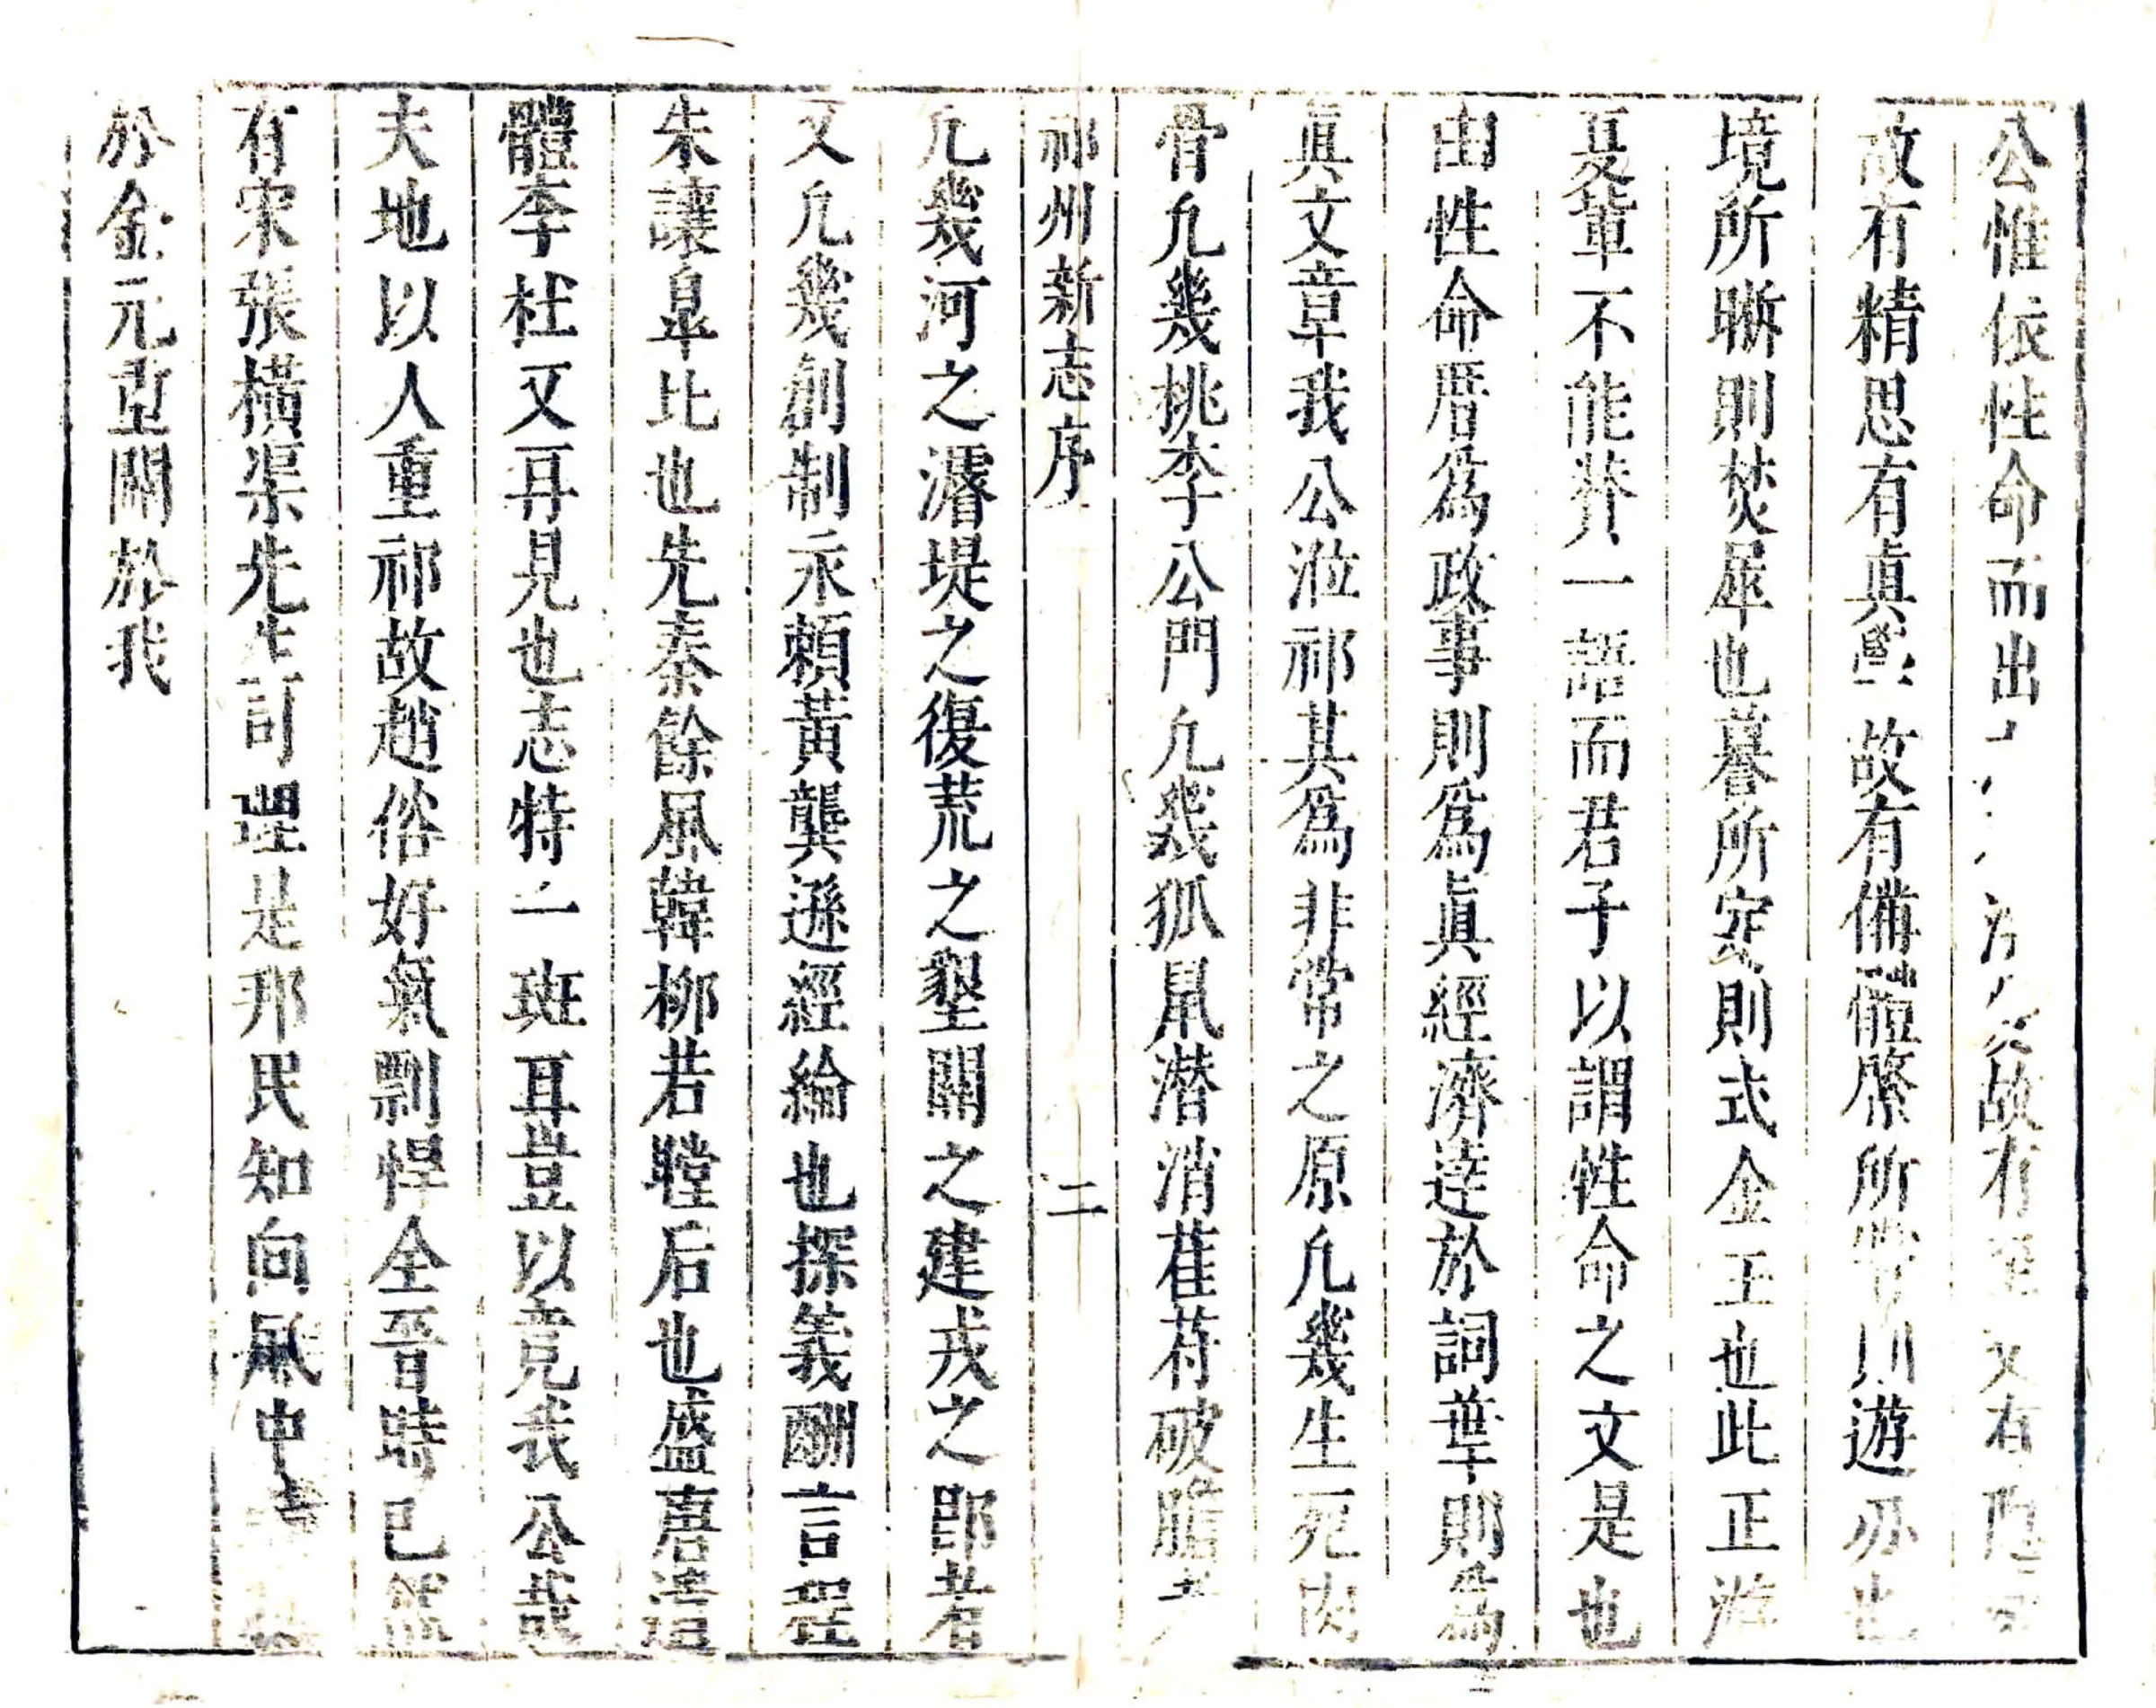 公惟依性命而出故有又有
故有精思有真故有備體所則遊刃也
境所晰則焚犀也摹所定則式金玉也此正游
夏輩不能贊一語而君子以謂性命之文是也
由性命厝爲政事則爲眞經濟逹於詞葉則爲
眞文章我公涖祁其爲非常之原凢幾生死肉
骨凢幾桃李公門凢幾狐鼠潛消萑苻破膽
祁州新志序
二
凢幾河之濬堤之復荒之墾關之建戎之郎者
又凢幾創制永賴黃龔遜經綸也探義酬言程
朱讓臯比也先秦餘風韓柳若瞠后也盛唐
體李杜又再見也志特一斑耳豈以竟我公哉
夫地以人重祁故趙俗好氣剽悍全晉時已
有宋張橫渠先生司理是邦民知向風中
於金元重闢於我